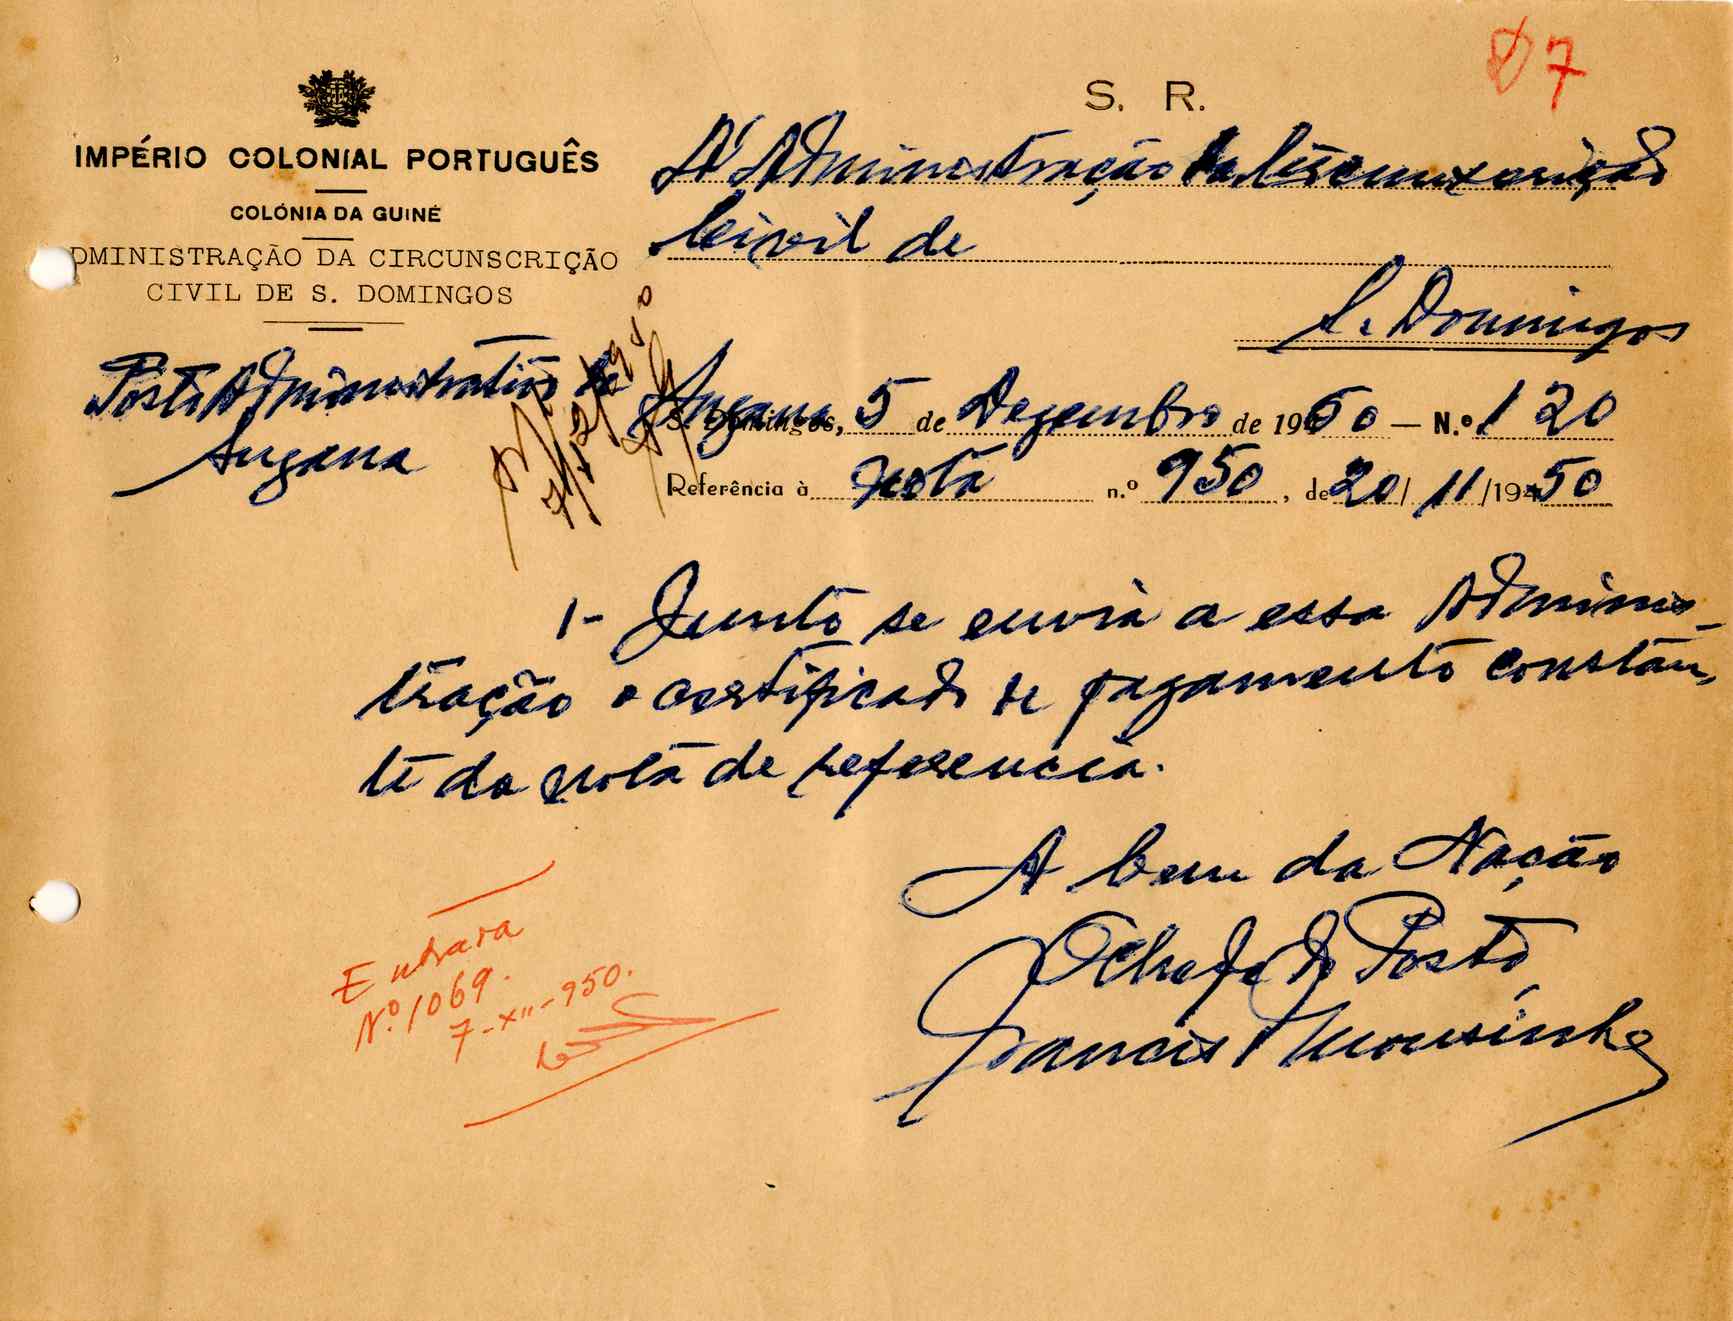 D7
S. R.
IMPÉRIO COLONIAL PORTUGUÊS
COLÓNIA DA GUINÉ
DMINISTRAÇÃO DA CIRCUNSCRIÇÃO
CIVIL DE S. DOMINGOS
Posto Administrativo de
Suzana
À Administração da Circunscrição
Civil de
S. Domingos
Suzana, 5 de Dezembro de 1950 — N.º 120
Referência à nota n.º 950, de 20/11/1950
1- Junto se envia a essa Adminis-
tração o certificado de pagamento constan-
te da nota de referencia.
A bem da Nação
O Chefe do Posto
Francisco Mousinho
Entrada
Nº. 1069.
7-XII-950.